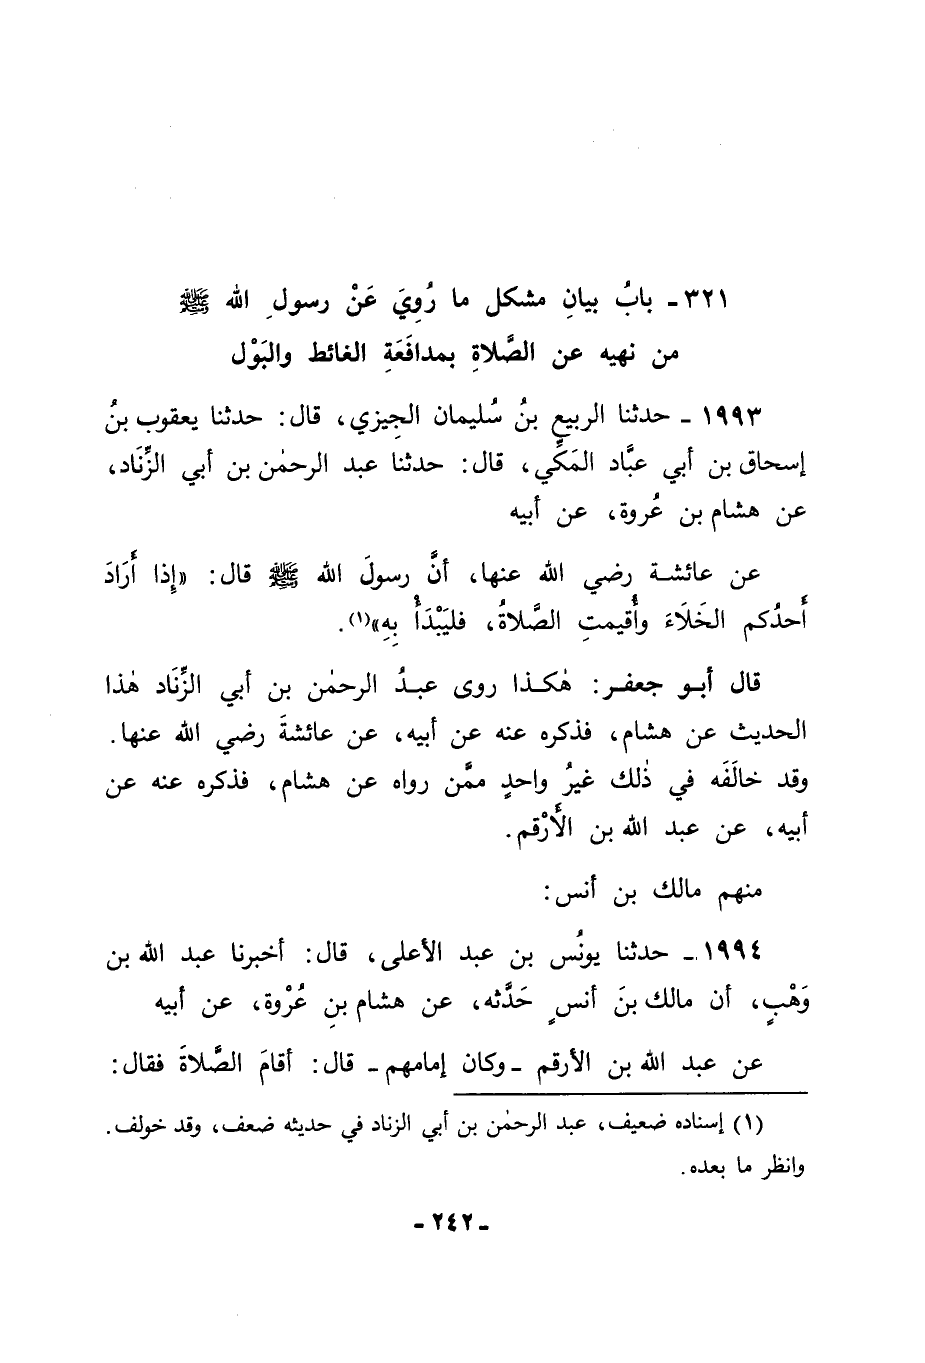 ٣٢١ـ بابُ بيانِ مشكل ما رُوِيَ عَنْ رسولِ الله ﷺ
من نهيه عن الصَّلاةِ بمدافَعَةِ الغائط والبَوْل
١٩٩٣ ـ حدثنا الربيع بنُ سُليمان الجِيزي، قال: حدثنا يعقوب بنُ
إسحاق بن أبي عبَّاد المَكِّي، قال: حدثنا عبد الرحمٰن بن أبي الزِّنَاد،
عن هشام بن عُروة، عن أبيه
عن عائشة رضي الله عنها، أنَّ رسولَ الله ﷺ قال: «إِذا أَرَادَ
أَحدُكم الخَلَاءَ وأُقيمتِ الصَّلاةُ، فليَبْدَأْ بِهِ»(١).
قال أبو جعفر: هٰكذا روى عبدُ الرحمٰن بن أبي الزِّنَاد هٰذا
الحديث عن هشام، فذكره عنه عن أبيه، عن عائشةَ رضي الله عنها.
وقد خالَفَه في ذٰلك غيرُ واحدٍ ممَّن رواه عن هشام، فذكره عنه عن
أبيه، عن عبد الله بن الأَرْقم.
منهم مالك بن أنس:
١٩٩٤ـ حدثنا يونُس بن عبد الأعلى، قال: أخبرنا عبد الله بن
وَهْبٍ، أن مالك بنَ أنسٍ حَدَّثه، عن هشام بنِ عُرْوة، عن أبيه
عن عبد الله بن الأرقم ـ وكان إمامهم ـ قال: أقامَ الصَّلاةَ فقال:
(١) إسناده ضعيف، عبد الرحمٰن بن أبي الزناد في حديثه ضعف، وقد خولف.
وانظر ما بعده.
ـ ٢٤٢ ـ